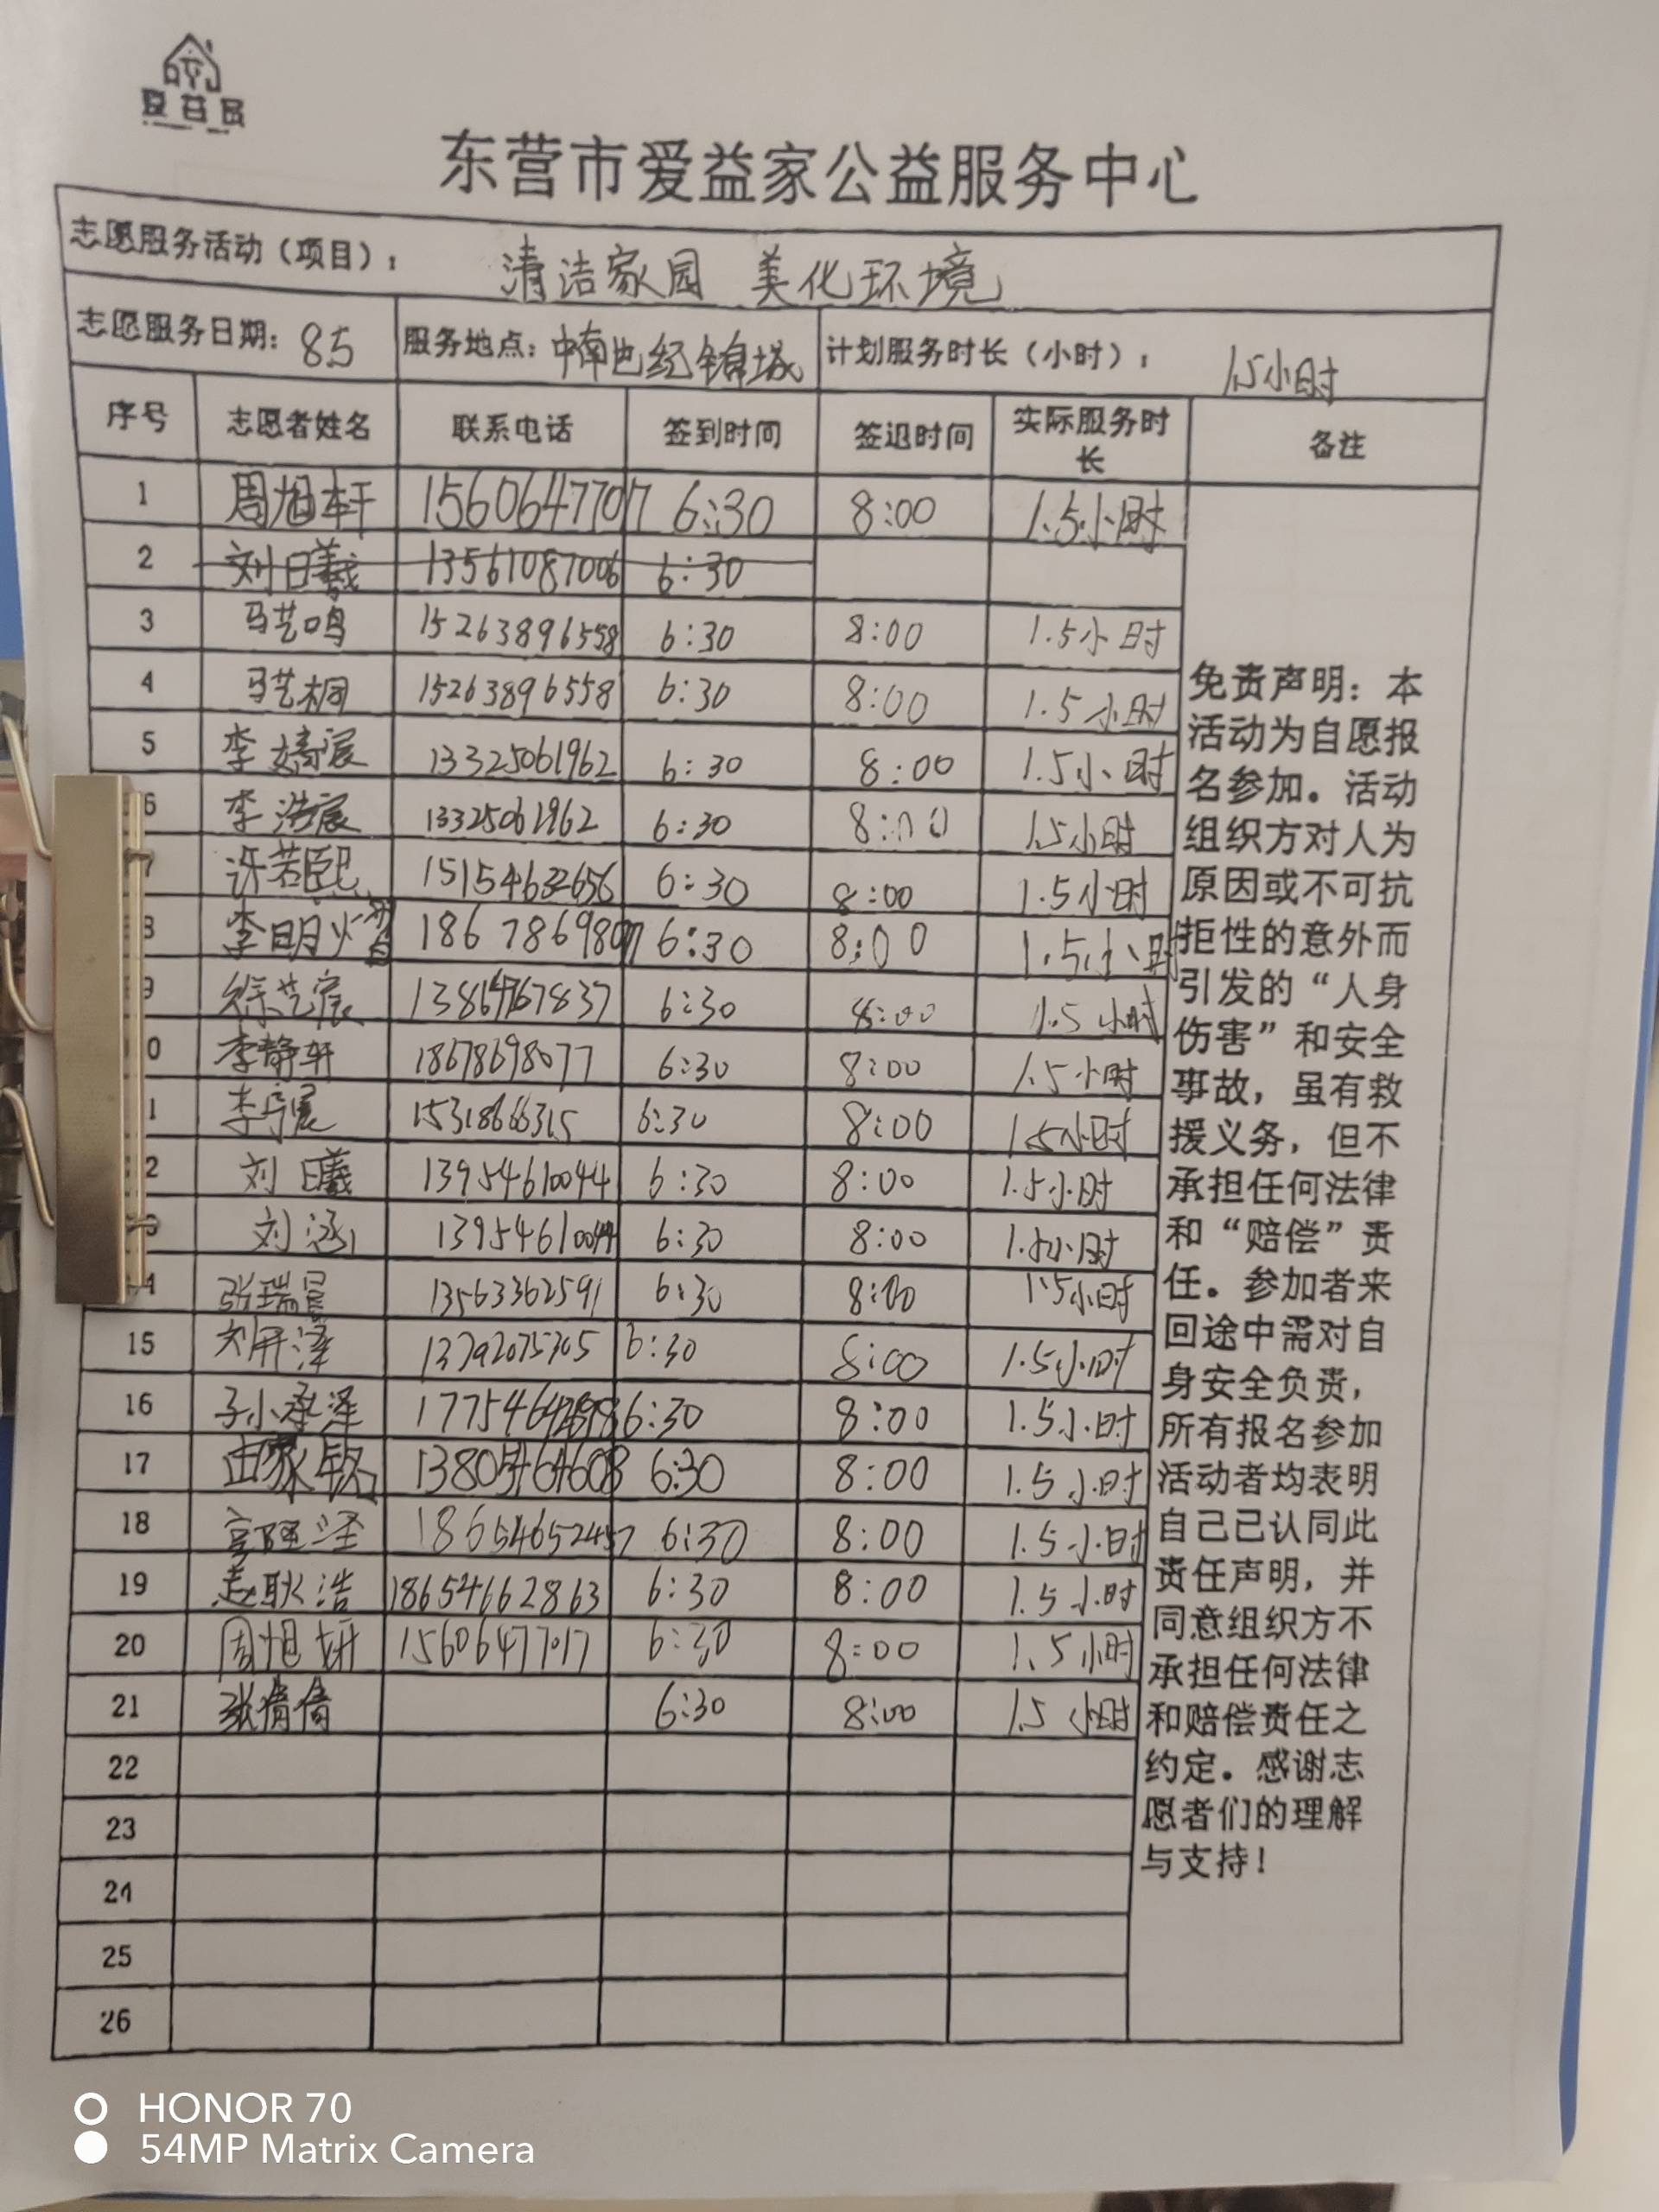 爱益家
东营市爱益家公益服务中心
志愿服务活动（项目）： 清洁家园 美化环境
志愿服务日期: 85 服务地点: 中南世纪锦城 计划服务时长（小时）: 1.5小时
序号 志愿者姓名 联系电话 签到时间 签退时间 实际服务时长 备注
1 周旭轩 15606477017 6:30 8:00 1.5小时
2 刘日曦 13561087006 6:30
3 马艺鸣 15263896558 6:30 8:00 1.5小时
4 马艺桐 15263896558 6:30 8:00 1.5小时
5 李婧宸 13325061962 6:30 8:00 1.5小时
6 李浩宸 13325061962 6:30 8:00 1.5小时
7 许若熙 15154632656 6:30 8:00 1.5小时
8 李明 6:30 8:00 1.5小时
9 徐艺宸 6:30 8:00 1.5小时
10 李静轩 18678698077 6:30 8:00 1.5小时
1 李宁宸 15318666315 6:30 8:00 1.5小时
2 刘日曦 13954610044 6:30 8:00 1.5小时
3 刘涵 13954610044 6:30 8:00 1.5小时
4 张瑞 13563362591 6:30 8:00 1.5小时
15 6:30 8:00 1.5小时
16 6:30 8:00 1.5小时
17 由家铭 6:30 8:00 1.5小时
18 18654652457 6:30 8:00 1.5小时
19 赵耿浩 18654662863 6:30 8:00 1.5小时
20 周旭妍 15606477017 6:30 8:00 1.5小时
21 张倩倩 6:30 8:00 1.5小时
22
23
24
25
26
免责声明：本
活动为自愿报
名参加。活动
组织方对人为
原因或不可抗
拒性的意外而
引发的“人身
伤害”和安全
事故，虽有救
援义务，但不
承担任何法律
和“赔偿”责
任。参加者来
回途中需对自
身安全负责，
所有报名参加
活动者均表明
自己已认同此
责任声明，并
同意组织方不
承担任何法律
和赔偿责任之
约定。感谢志
愿者们的理解
与支持！
HONOR 70
54MP Matrix Camera